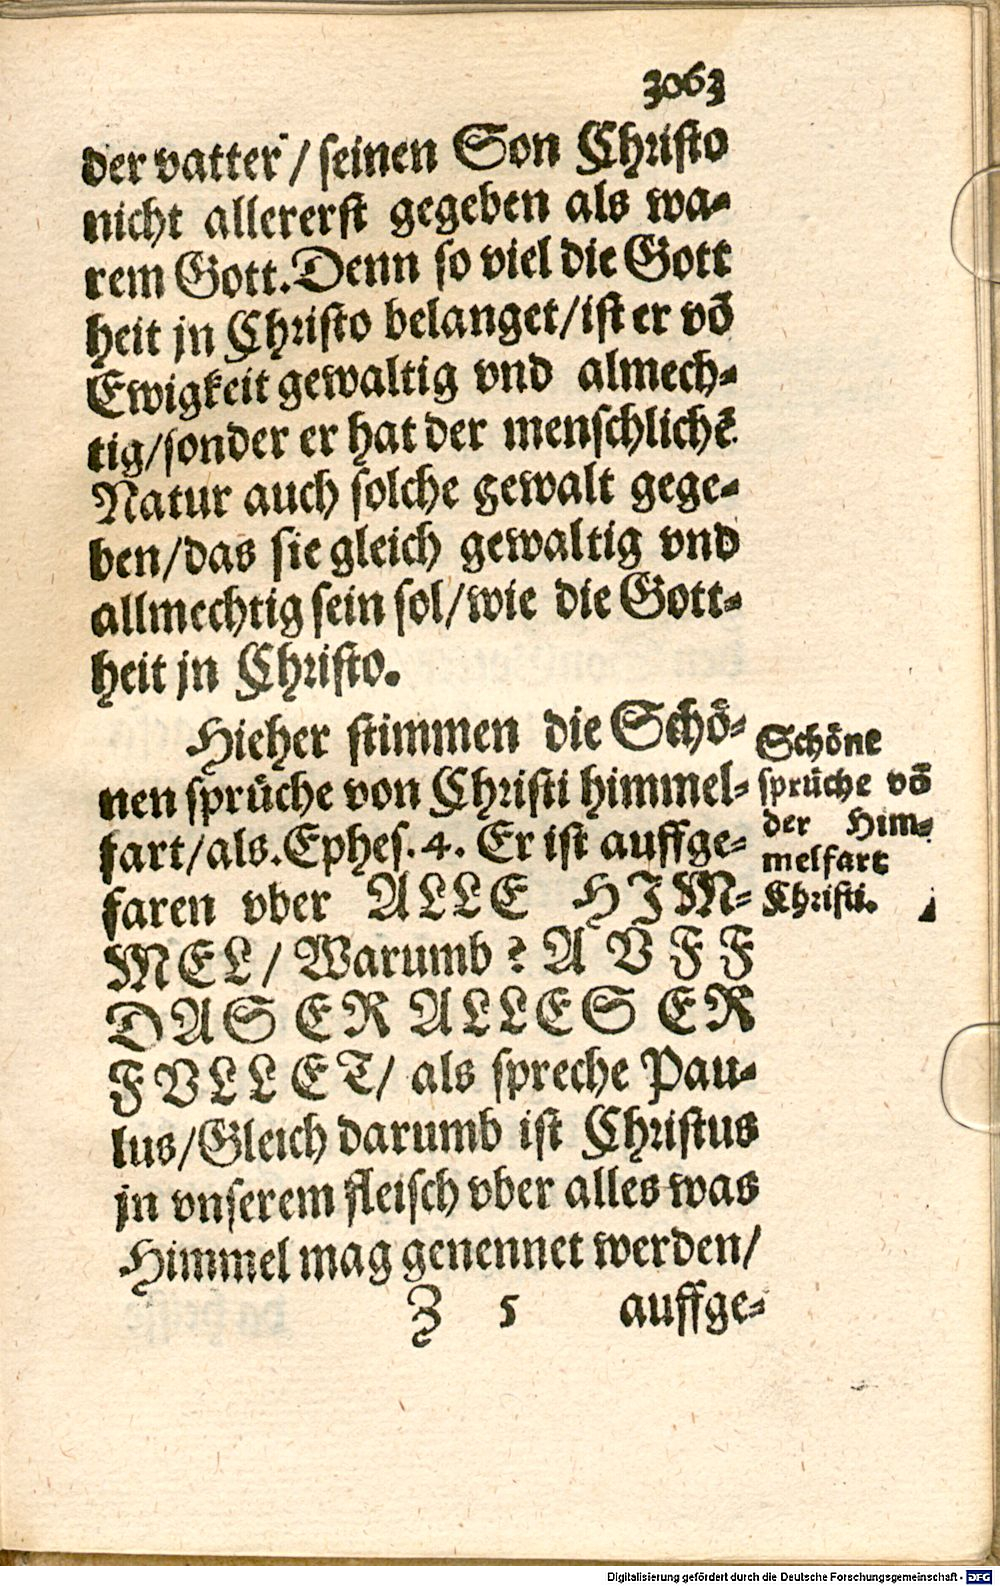 3063
der vatter / seinen Son Christo
nicht allererst gegeben als wa-
rem Gott. Denn so viel die Gott
heit jn Christo belanget/ ist er võ
Ewigkeit gewaltig vnd almech-
tig/ sonder er hat der menschlichẽ
Natur auch solche gewalt gege-
ben/ das sie gleich gewaltig vnd
allmechtig sein sol/ wie die Gott-
heit jn Christo.
Hieher stimmen die Schö-
nen sprüche von Christi himmel-
fart/ als. Ephes. 4. Er ist auffge-
faren vber ALLE HIM-
MEL/ Warumb? AVFF
DAS ER ALLES ER
FVLLET/ als spreche Pau-
lus/ Gleich darumb ist Christus
jn vnserem fleisch vber alles was
Himmel mag genennet werden/
Z 5 auffge-
Schöne
sprüche võ
der Him-
melfart
Christi.
Digitalisierung gefördert durch die Deutsche Forschungsgemeinschaft - DFG